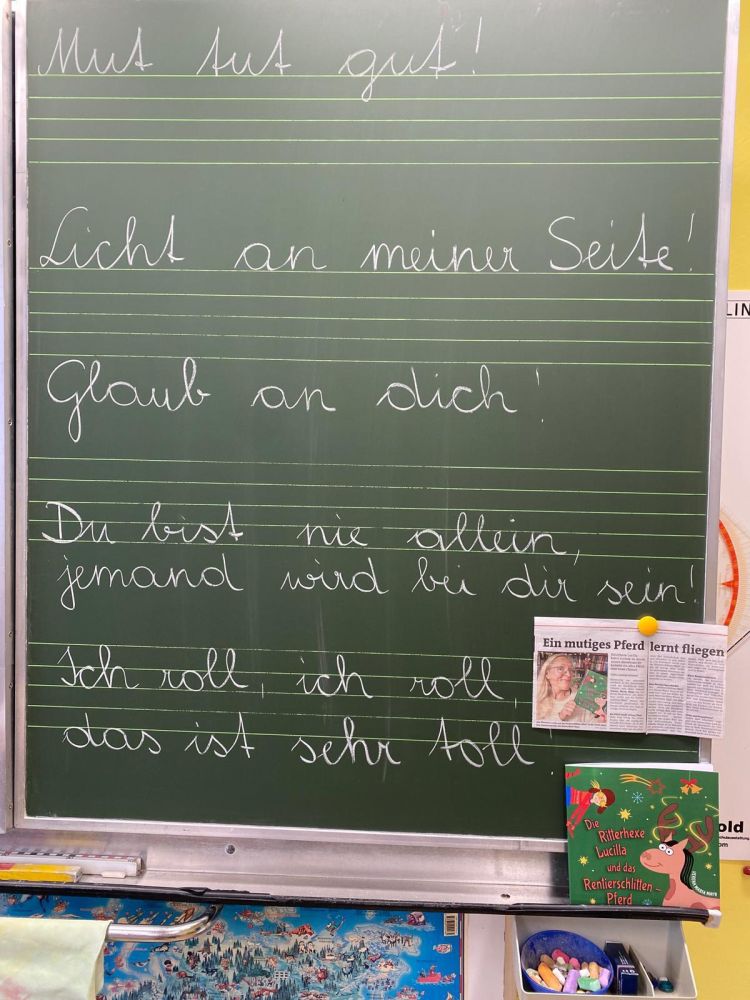 Mut tut gut!
Licht an meiner Seite!
Glaub an dich!
Du bist nie allein,
jemand wird bei dir sein!
Ich roll, ich roll,
das ist sehr toll!
Ein mutiges Pferd lernt fliegen
Die
Ritterhexe
Lucilla
und das
Rentierschlitten-
Pferd
LIN
old
om